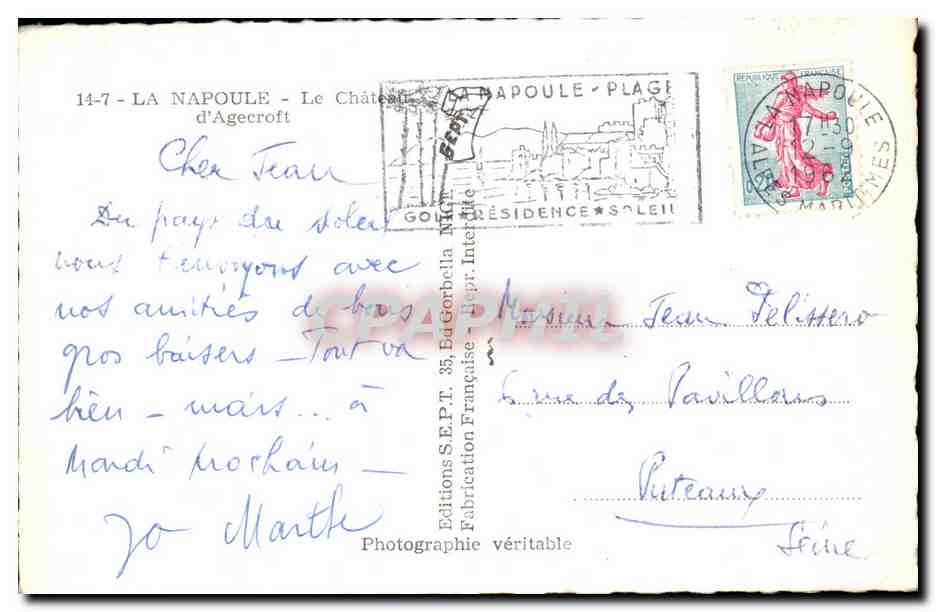 14-7 - LA NAPOULE - Le Château
d'Agecroft
Cher Jean
Du pays du soleil
nous t'envoyons avec
nos amitiés de bons
gros baisers - Tout va
bien - mais... à
Mardi prochain -
Jo Marthe
Editions S.E.P.T. 35, Bd Gorbella NICE
Fabrication Française - Repr. Interdite
Photographie véritable
LA NAPOULE - PLAGE
SEPT
GOLF ★ RÉSIDENCE ★ SOLEIL
REPUBLIQUE FRANÇAISE
POSTES
LA NAPOULE
17H30
2-9
196
ALPES MARITIMES
Monsieur Jean Pelissero
6 rue des Pavillons
Puteaux
Seine
CPAPHIL